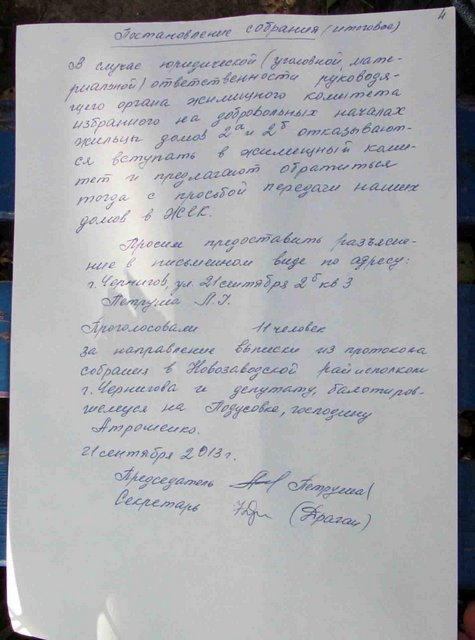 4
Постановление собрания (итоговое)
В случае юридической (уголовной, мате-
риальной) ответственности руководя-
щего органа жилищного комитета
избранного на добровольных началах
жильцы домов 2а и 2б отказывают-
ся вступать в жилищный коми-
тет и предлагают обратиться
тогда с просьбой передачи наших
домов в ЖЕК.
Просим предоставить разъясне-
ние в письменном виде по адресу:
г. Чернигов, ул. 21 сентября 2б кв 3
Петруша Л.І.
Проголосовали 11 человек
за направление выписки из протокола
собрания в Новозаводской райисполком
г. Чернигова и депутату, балотиров-
шемуся на Подусовке, господину
Атрошенко.
21 сентября 2013 г.
Председатель Петруша
Секретарь (Драган)